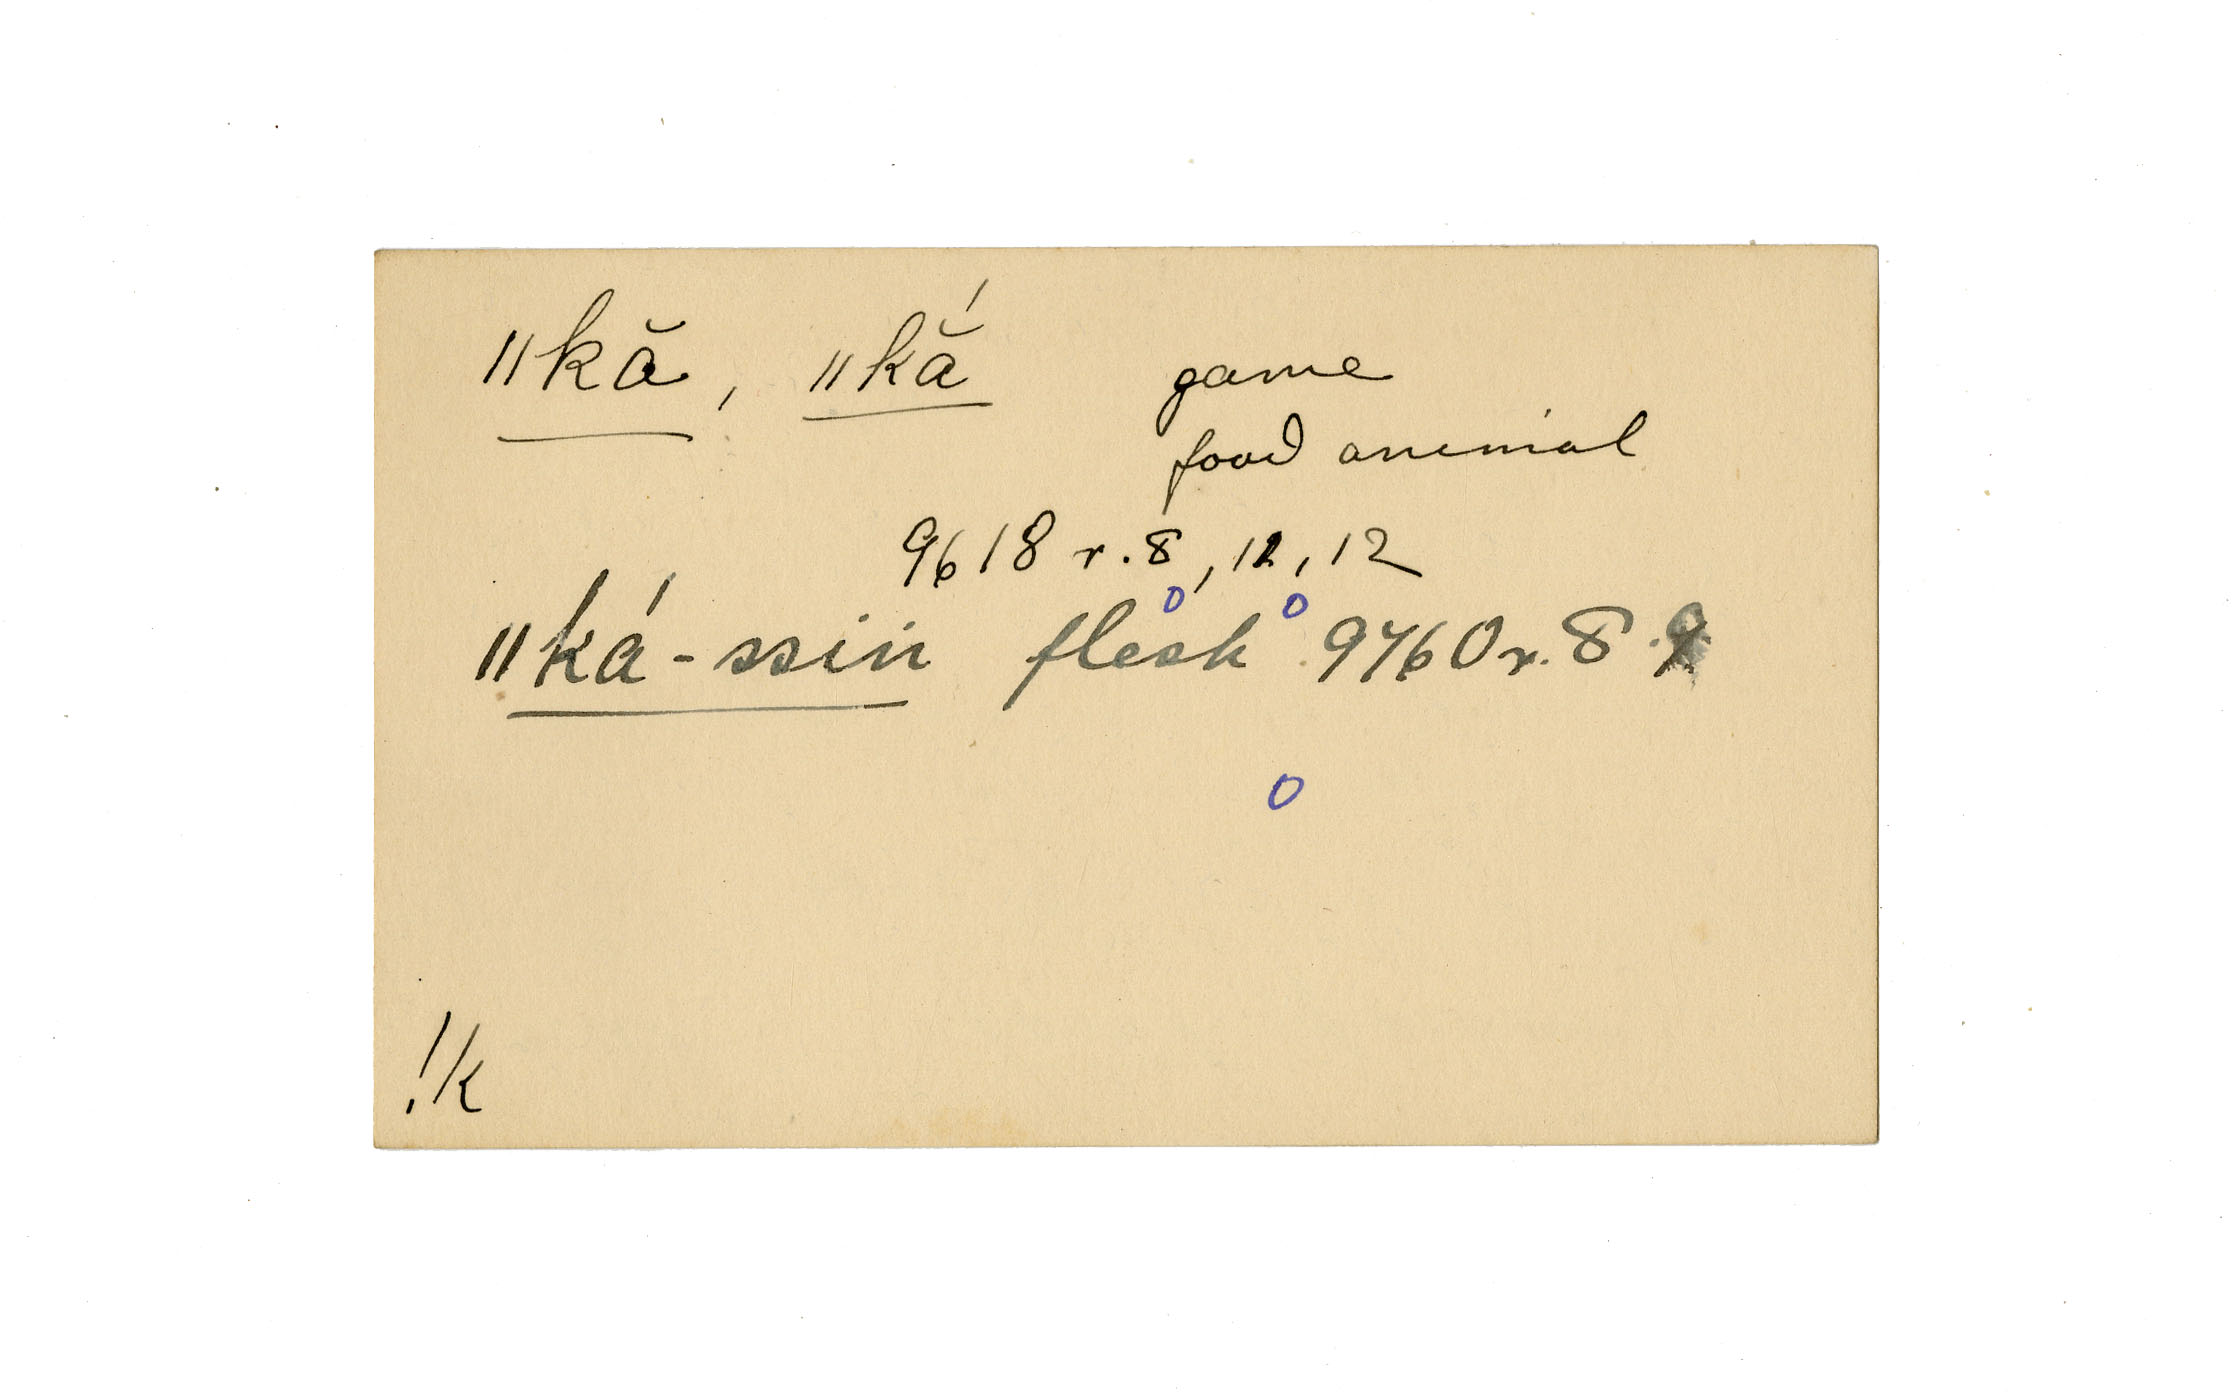 ǁkă, ǁkắ game
food animal
9618 r. 8, 11, 12
ǁká-ssin flesh 9760 r. 8
!k